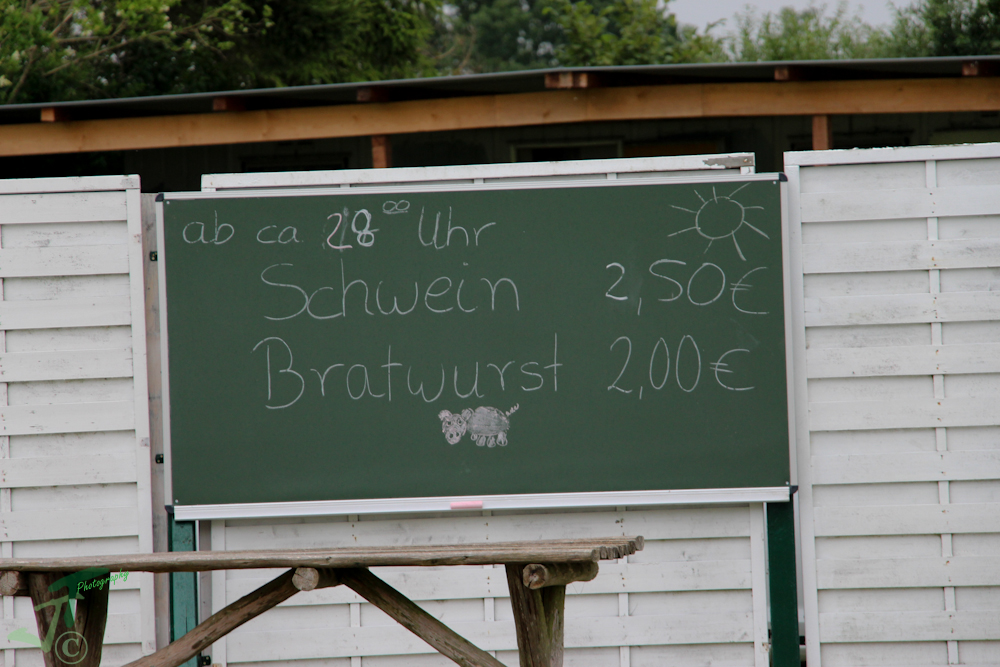 ab ca 28⁰⁰ Uhr
Schwein 2,50€
Bratwurst 2,00€
Photography
©